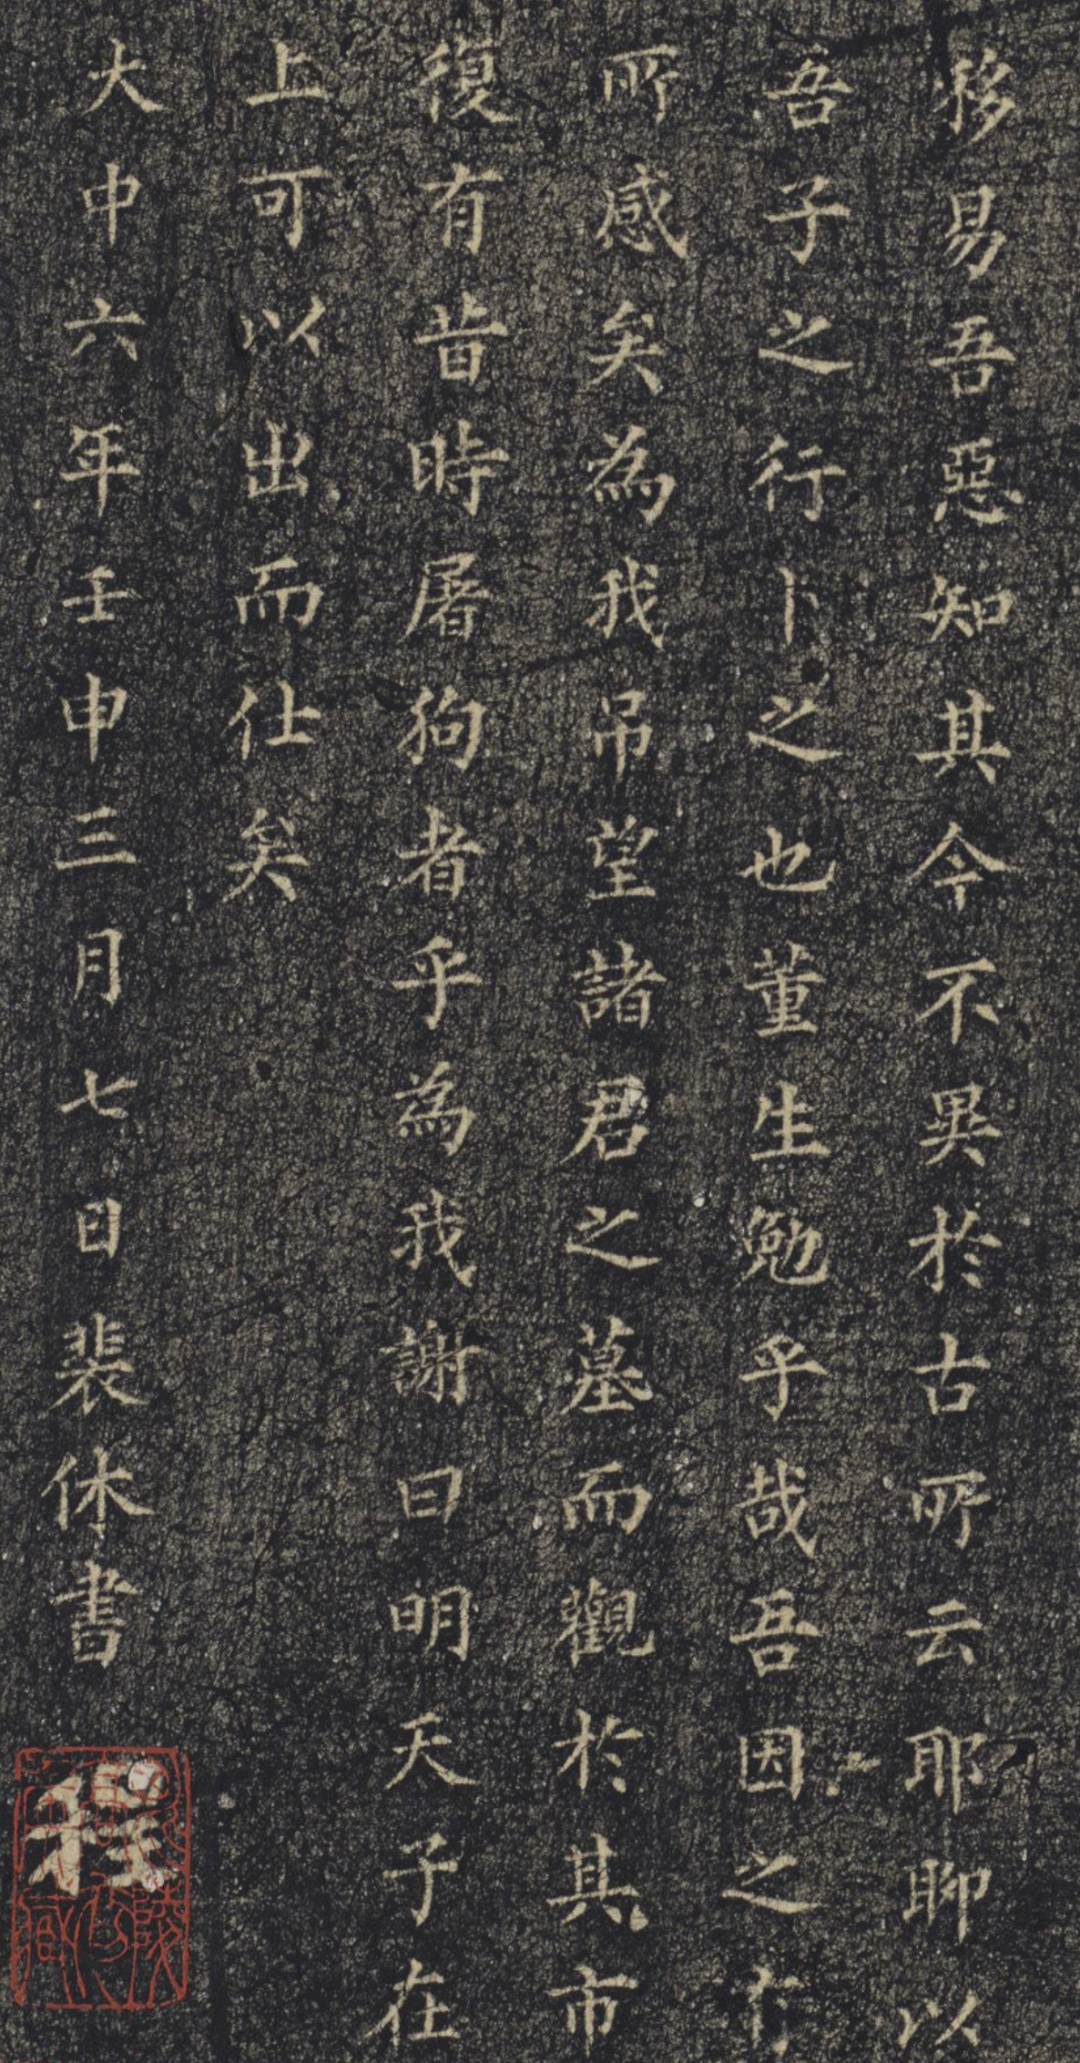 移易吾惡知其今不異於古所云耶聊以
吾子之行卜之也董生勉乎哉吾因之有
所感矣為我吊望諸君之墓而觀於其市
復有昔時屠狗者乎為我謝曰明天子在
上可以出而仕矣
大中六年壬申三月七日裴休書